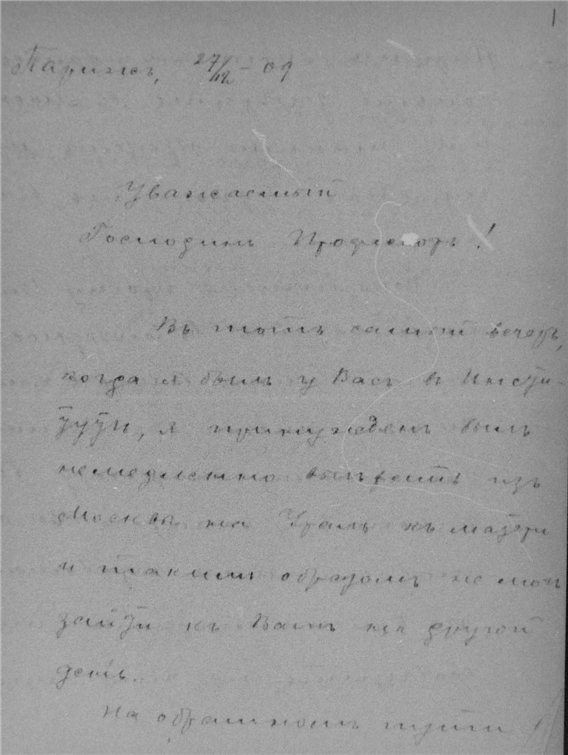 1
Парижъ, 27/12 - 09
Уважаемый
Господинъ Профессоръ!
Въ тотъ самый вечеръ,
когда я былъ у Васъ в Инсти-
тутѣ, я принужденъ былъ
немедленно выѣхать изъ
Москвы на Уралъ къ матери
и такимъ образомъ не могъ
зайти къ Вамъ на другой
день.
На обратномъ пути